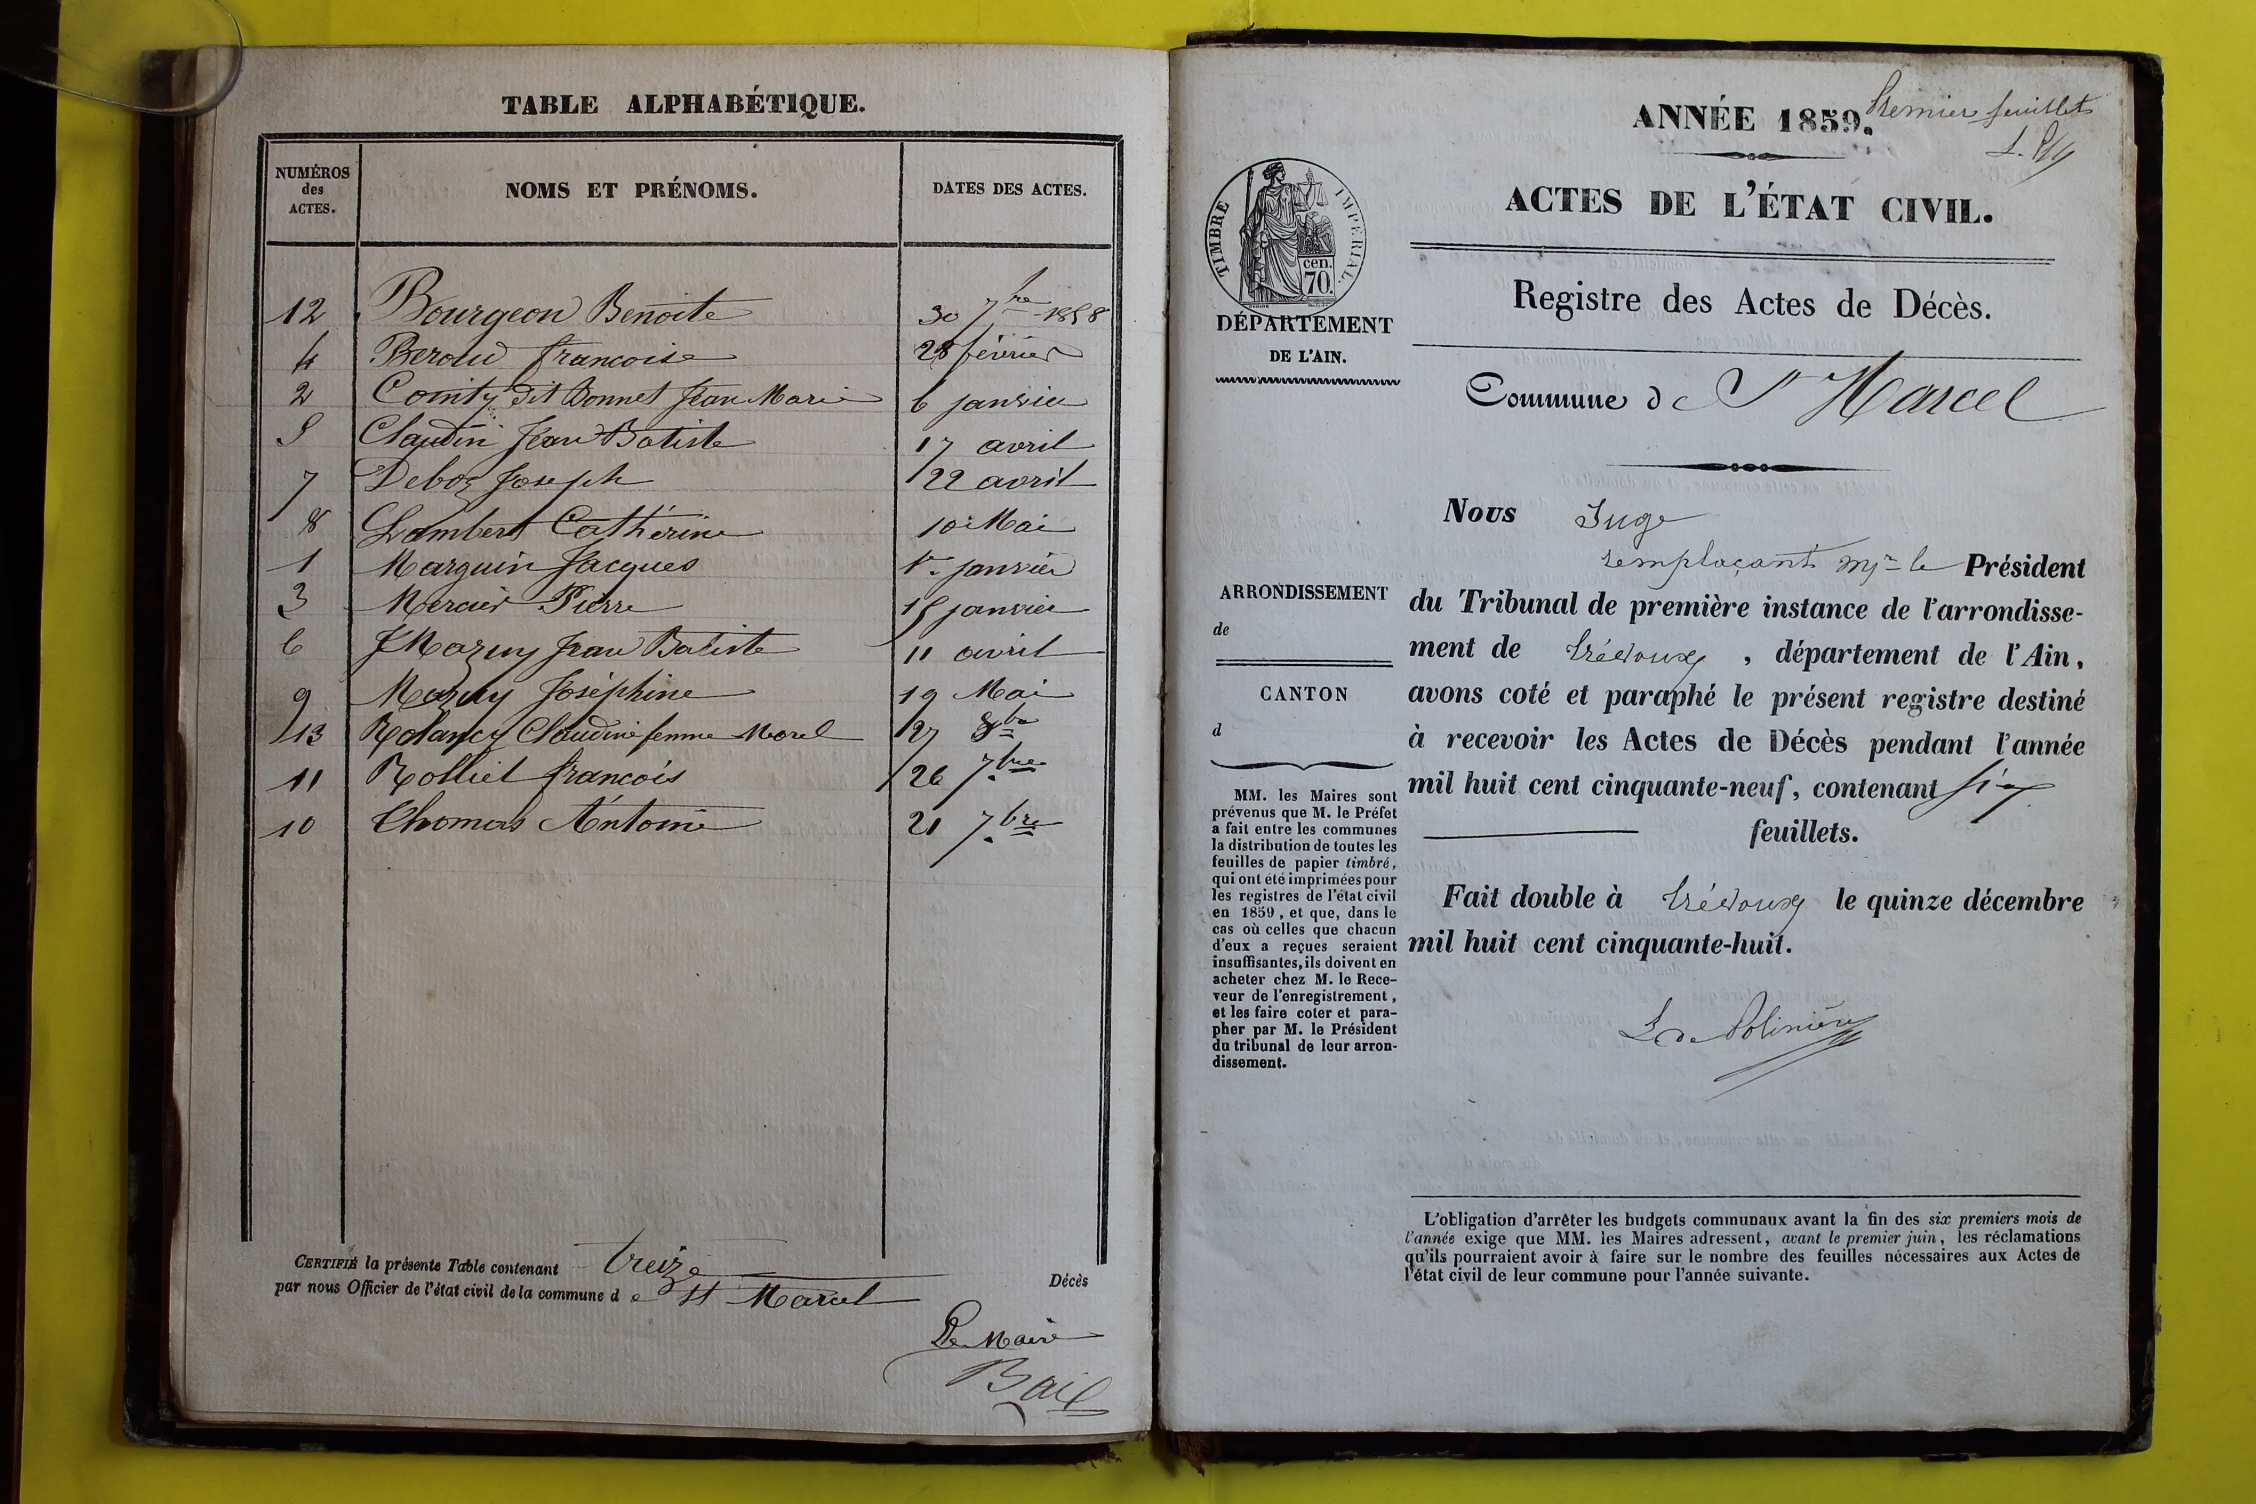 TABLE ALPHABÉTIQUE.
NUMÉROS des ACTES. NOMS ET PRÉNOMS. DATES DES ACTES.
12 Bourgeon Benoite 30 7bre 1858
4 Beroud francoise 28 février
2 Comity dit Bonnet Jean Marie 6 janvier
5 Claudin Jean Batiste 17 avril
7 Deboz Joseph 22 avril
8 Lambert Cathérine 10 Mai
1 Marguin Jacques 1er janvier
3 Mercier Pierre 15 janvier
6 Mazuy Jean Batiste 11 avril
9 Mazuy Joséphine 19 Mai
13 Rolancy Claudine femme Morel 27 8bre
11 Rolliet francois 26 7bre
10 Thomas Antoine 21 7bre
CERTIFIÉ la présente Table contenant treize Décès
par nous Officier de l'état civil de la commune d e St Marcel
Le Maire
Bail
Premier feuillet
ANNÉE 1859.
ACTES DE L'ÉTAT CIVIL.
TIMBRE IMPERIAL.
cen.
70.
DÉPARTEMENT
DE L'AIN.
Registre des Actes de Décès.
Commune de St Marcel
ARRONDISSEMENT
de
CANTON
d
MM. les Maires sont
prévenus que M. le Préfet
a fait entre les communes
la distribution de toutes les
feuilles de papier timbré,
qui ont été imprimées pour
les registres de l'état civil
en 1859, et que, dans le
cas où celles que chacun
d'eux a reçues seraient
insuffisantes, ils doivent en
acheter chez M. le Rece-
veur de l'enregistrement,
et les faire coter et para-
pher par M. le Président
du tribunal de leur arron-
dissement.
Nous Juge
remplaçant Mr le Président
du Tribunal de première instance de l'arrondisse-
ment de trévoux, département de l'Ain,
avons coté et paraphé le présent registre destiné
à recevoir les Actes de Décès pendant l'année
mil huit cent cinquante-neuf, contenant six
feuillets.
Fait double à trévoux le quinze décembre
mil huit cent cinquante-huit.
L de Polinière
L'obligation d'arrêter les budgets communaux avant la fin des six premiers mois de
l'année exige que MM. les Maires adressent, avant le premier juin, les réclamations
qu'ils pourraient avoir à faire sur le nombre des feuilles nécessaires aux Actes de
l'état civil de leur commune pour l'année suivante.